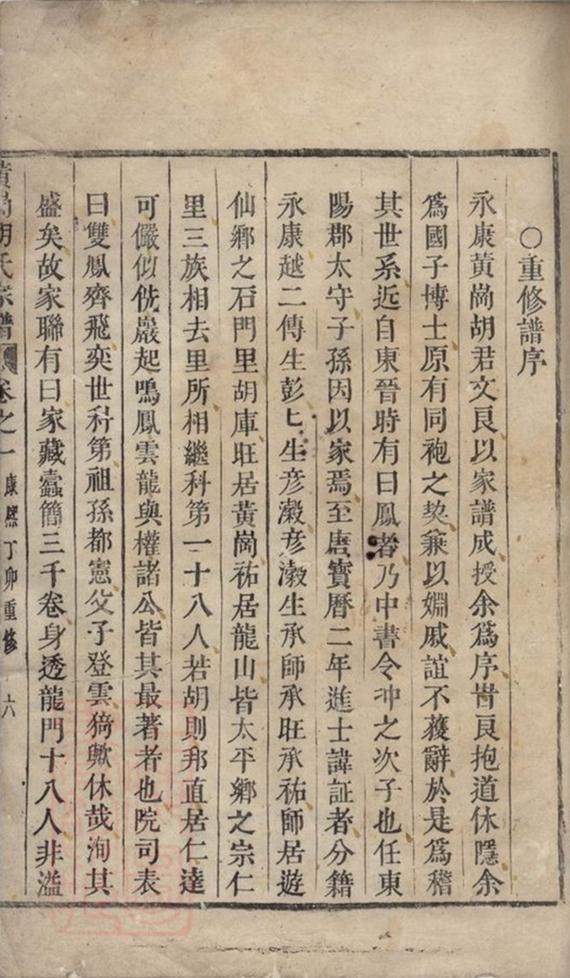 ○重修譜序
永康黃崗胡君文良以家譜成授余爲序昔良抱道休隱余
爲國子博士原有同袍之契兼以婣戚誼不獲辭於是爲稽
其世系近自東晉時有曰鳳者乃中書令冲之次子也任東
陽郡太守子孫因以家焉至唐寳曆二年進士諱証者分籍
永康越二傳生彭匕生彦澂彦澂生承師承旺承祐師居遊
仙鄉之石門里胡庫旺居黃崗祐居龍山皆太平鄉之宗仁
里三族相去里所相繼科第一十八人若胡則邦直居仁達
可儼似侁巖起鳴鳳雲龍與權諸公皆其最著者也院司表
曰雙鳳齊飛奕世科第祖孫都憲父子登雲猗歟休哉洵其
盛矣故家聯有曰家藏蠹簡三千卷身透龍門十八人非濫
黃崗胡氏宗譜 卷之一 康熙丁卯重修 六